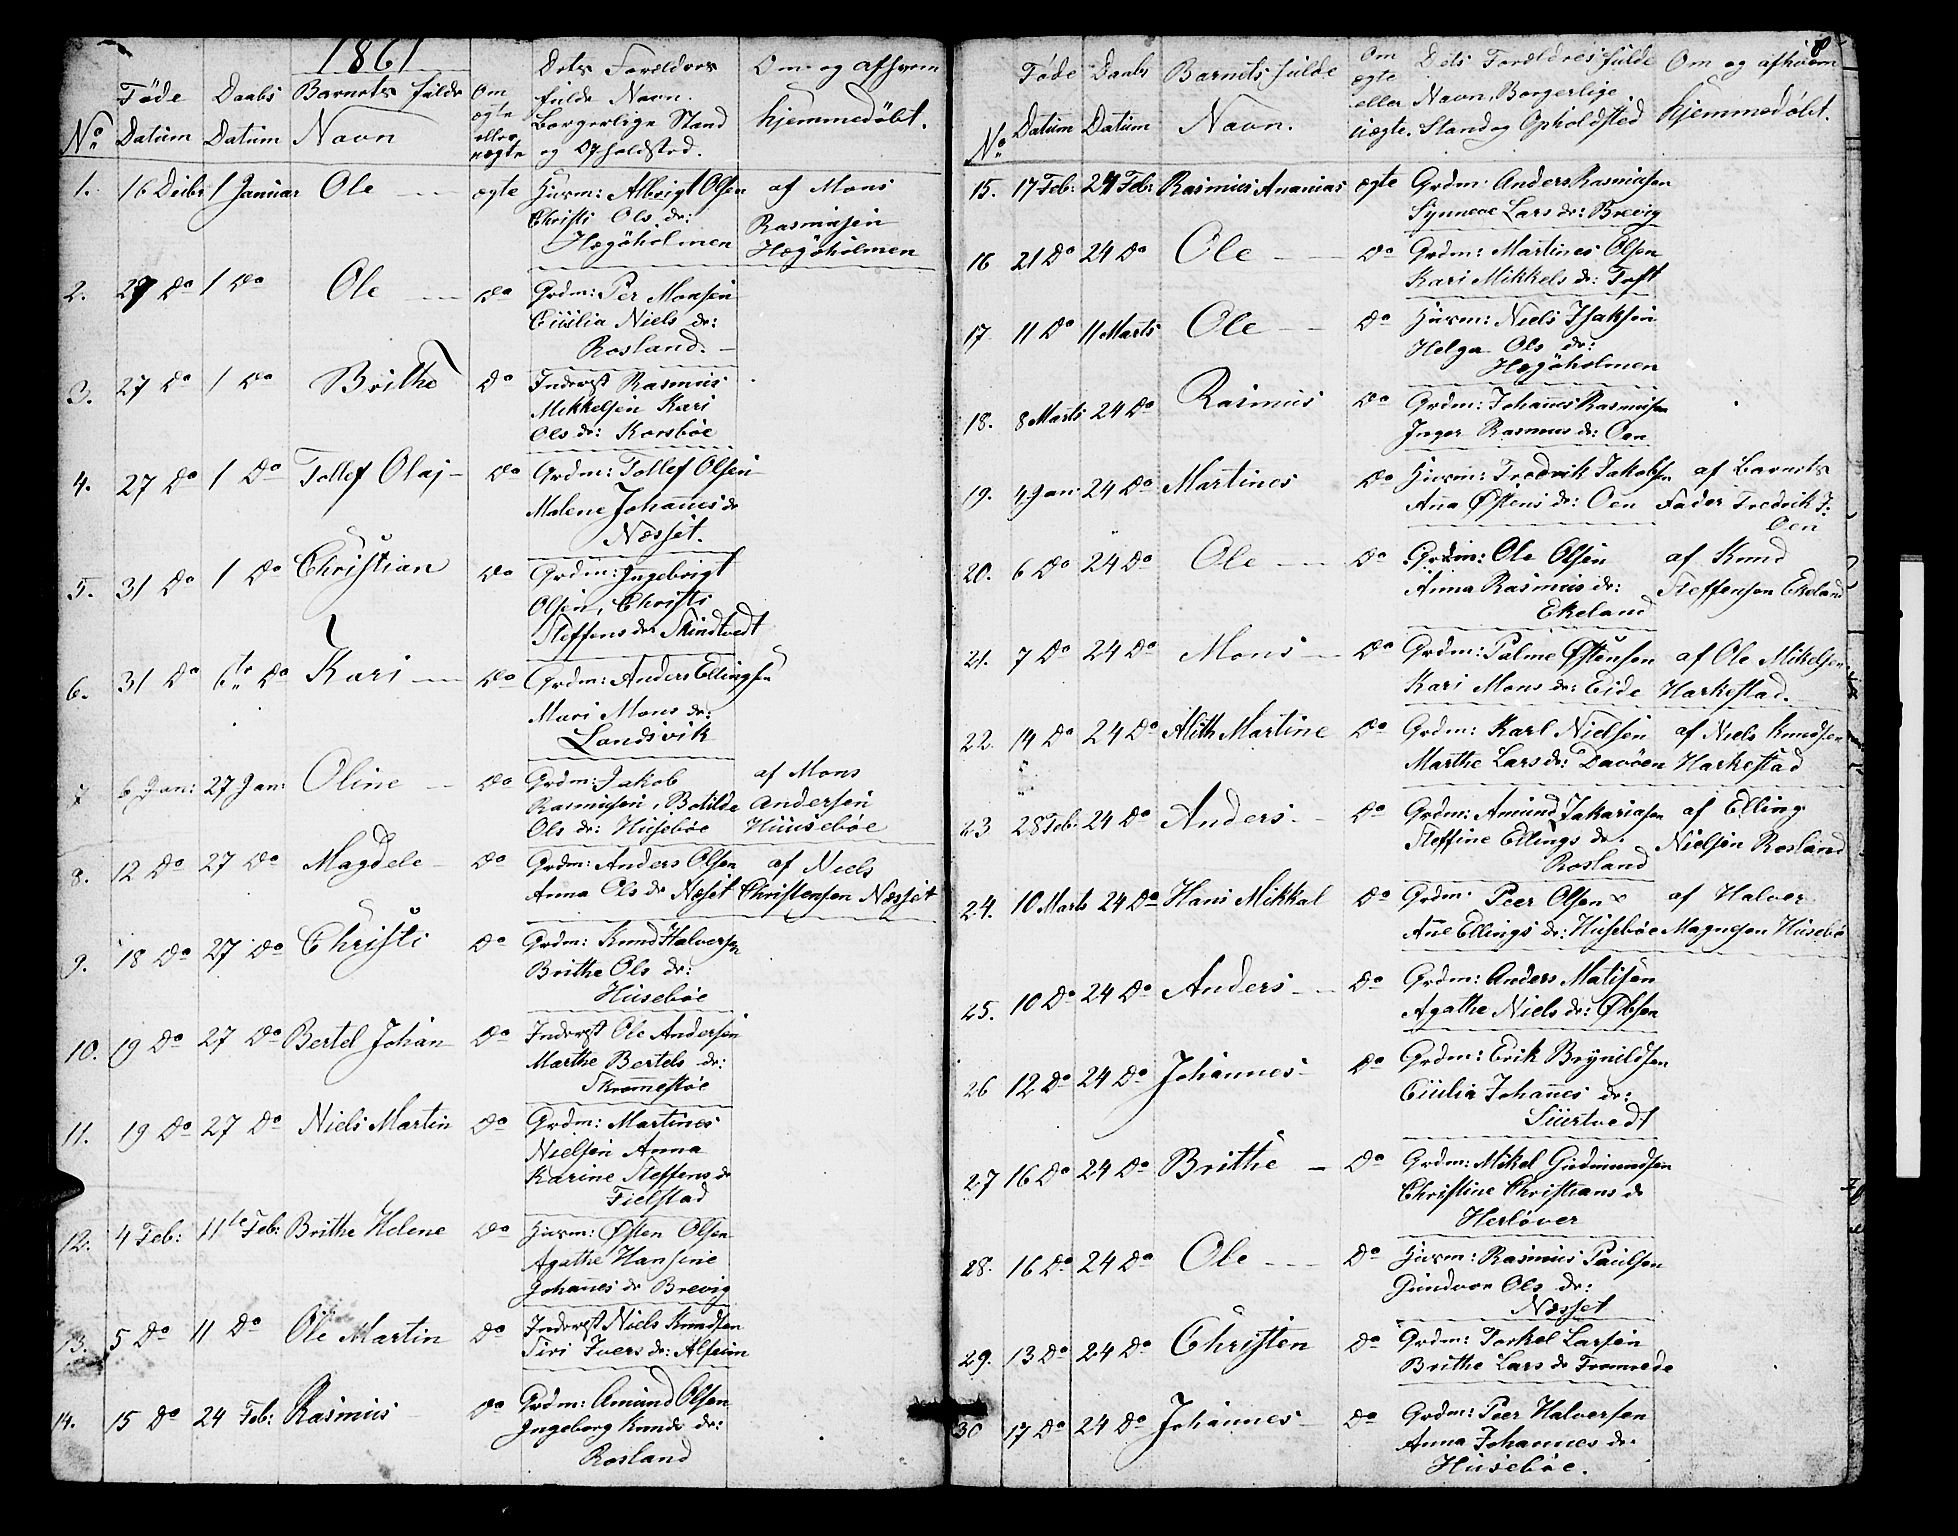 1861
No Føde Datum Daabs Datum Barnets fulde Navn Om ægte eller uægte Dets Forældres fulde Navn. Borgerlige Stand og Opholdsted. Om og af hvem hjemmedøbt.
1. 16 Decbr 1 Januar Ole ægte Huvm: Albrigt Olsen af Mons
Christi Ols dr: Rasmusen
Hægöholmen Hægöholmen
2. 27 Do 1 Do Ole Do Grdm: Per Monsen
Cicilia Niels dr:
Rosland.
3. 27 Do 1 Do Brithe Do Inderst Rasmus
Mikkelsen Kari
Ols dr: Korsbøe
4. 27 Do 1 Do Tollef Olaj Do Grdm: Tollef Olsen
Malene Johannes dr
Næsset.
5. 31 Do 1 Do Christian Do Grdm: Ingebrigt
Olsen, Christi
Steffens dr Skindtvedt
6. 31 Do 6te Do Kari Do Grdm: Anders Ellingsen
Mari Mons dr:
Landsvik
7 6 Jan: 27 Jan: Oline Do Grdm: Jakob af Mons
Rasmusen, Botilde Andersen
Ols dr: Husebøe Huusebøe
8. 12 Do 27 Do Magdele Do Grdm: Anders Olsen af Niels
Anna Ols dr Næset Christensen Næsset
9. 18 Do 27 Do Christi Do Grdm: Knud Halversen
Brithe Ols dr:
Husebøe
10. 19 Do 27 Do Bertel Johan Do Inderst Ole Andersen
Marthe Bertels dr:
Skrommestøe
11. 19 Do 27 Do Niels Martin Do Grdm: Martines
Nielsen Anna
Karine Steffens dr
Fielstad
12. 4 Feb: 11te Feb: Brithe Helene Do Huvm: Østen Olsen
Agathe Hansine
Johannes dr Brevig
13. 5 Do 11 Do Ole Martin Do Inderst Niels Knudsen
Siri Ivers dr: Alfeim
14. 15 Do 24 Feb: Rasmus Do Grdm: Amund Olsen
Ingeborg Knuds dr:
Rosland
8
No Føde Datum Daabs Datum Barnets fulde Navn. Om ægte eller uægte. Dets Forældres fulde Navn, Borgerlige Stand og Opholdsted Om og af hvem hjemmedøbt.
15. 17 Feb: 24 Feb: Rasmus Ananias ægte Grdm: Anders Rasmusen
Synneve Lars dr: Brevig
16 21 Do 24 Do Ole Do Grdm: Martines Olsen
Kari Mikkels dr: Toft
17 11 Do 11 Marts Ole Do Huvm: Niels Isaksen
Helga Ols dr:
Hægöholmen
18. 8 Marts 24 Do Rasmus Do Grdm: Johannes Rasmusen
Inger Rasmus dr: Oen
19. 4 Jan: 24 Do Martines Do Huvm: Fredrik Jakobsen af Barnets
Ana Østens dr: Oen Fader Fredrik J.
Oen
20. 6 Do 24 Do Ole Do Grdm: Ole Olsen af Knud
Anna Rasmus dr: Steffensen Ekeland
Ekeland
21. 7 Do 24 Do Mons Do Grdm: Palme Østensen af Ole Mikelsen
Kari Mons dr: Eide Harkestad.
22. 14 Do 24 Do Alith Martine Do Grdm: Karl Nielsen af Niels Knudsen
Marthe Lars dr: Davøen Harkestad
23 28 Feb: 24 Do Anders Do Grdm: Amund Zakariasen af Elling
Steffine Ellings dr: Nielsen Rosland
Rosland
24. 10 Marts 24 Do Hans Mikkal Do Grdm: Peer Olsen af Halver
Ane Ellings dr: Husebøe Magnesen Husebø
25. 10 Do 24 Do Anders Do Grdm: Anders Matisen
Agathe Niels dr:
26 12 Do 24 Do Johannes Do Grdm: Erik Brynildsen
Cicilia Johannes dr:
27 16 Do 24 Do Brithe Do Grdm: Mikel Gudmundsen
Christine Christians dr
Herløver
28. 16 Do 24 Do Ole Do Huvm: Rasmus Paulsen
Gundvor Ols dr:
Næsset
29. 13 Do 24 Do Christen Do Grdm: Torkel Larsen
Brithe Lars dr
30 17 Do 24 Do Johannes Do Grdm: Peer Halversen
Anna Johannes dr:
Husebøe.